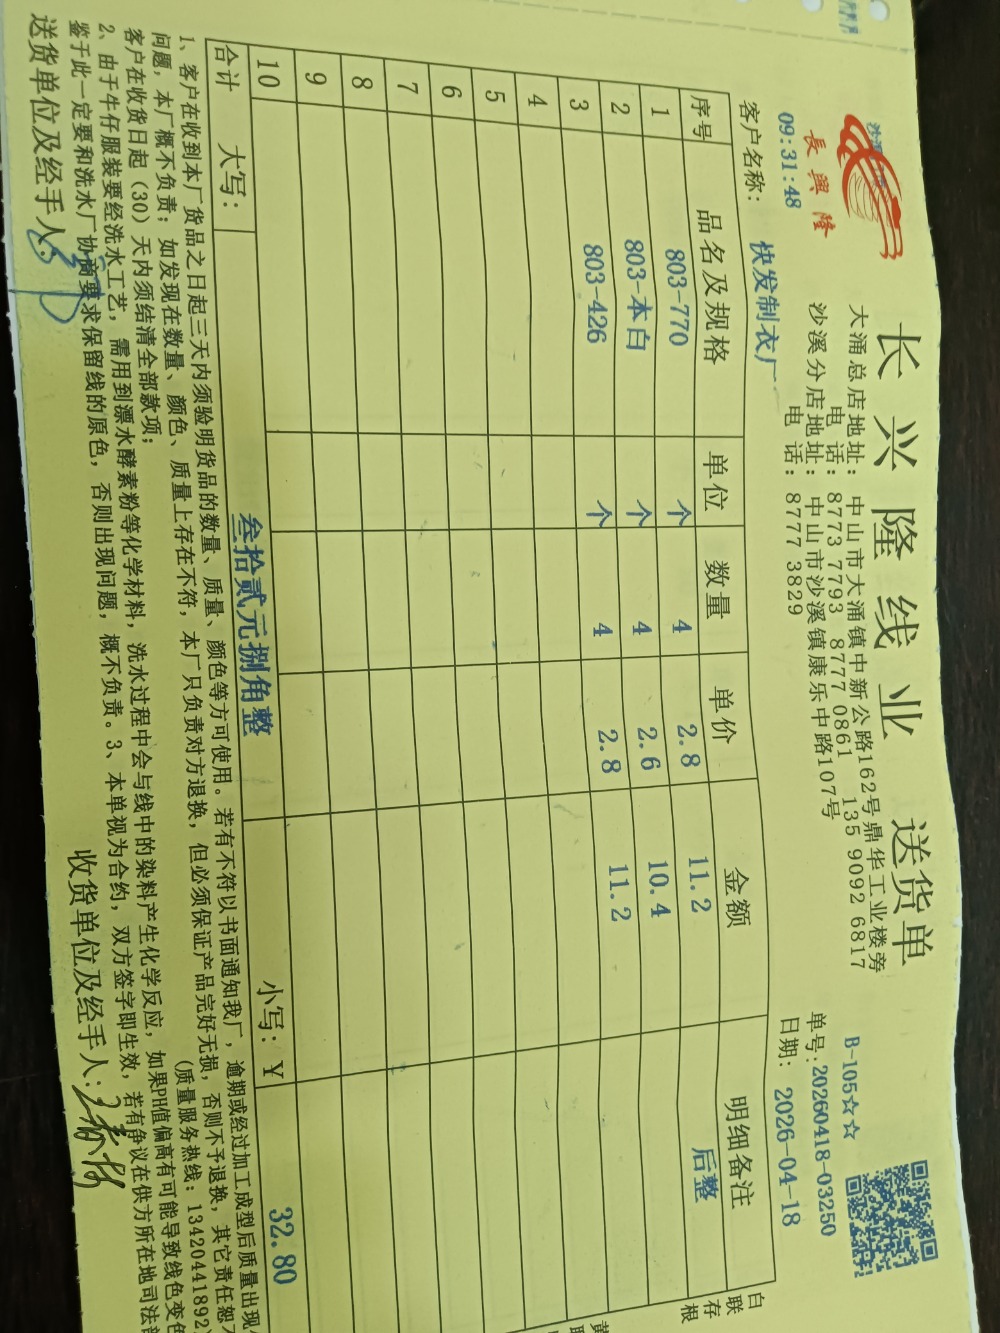 长兴隆线业 送货单
長興隆
大涌总店地址：中山市大涌镇中新公路162号鼎华工业楼旁
电 话：8773 7793 8777 0861 135 9092 6817
沙溪分店地址：中山市沙溪镇康乐中路107号
电 话：8777 3829
B-105☆☆
单号：20260418-03250
日期：2026-04-18
09:31:48
客户名称：快发制衣厂
序号 品名及规格 单位 数量 单价 金额 明细备注
1 803-770 个 4 2.8 11.2 后整
2 803-本白 个 4 2.6 10.4
3 803-426 个 4 2.8 11.2
4
5
6
7
8
9
10
合计 大写：叁拾贰元捌角整 小写：￥ 32.80
白联存根
1、客户在收到本厂货品之日起三天内须验明货品的数量、质量、颜色等方可使用。若有不符以书面通知我厂，逾期或经过加工成型后质量出现
问题，本厂概不负责；如发现在数量、颜色、质量上存在不符，本厂只负责对方退换，但必须保证产品完好无损，否则不予退换，其它责任恕
客户在收货日起（30）天内须结清全部款项； （质量服务热线：13420441892）
2、由于牛仔服装要经洗水工艺，需用到漂水酵素粉等化学材料，洗水过程中会与线中的染料产生化学反应，如果PH值偏高有可能导致线色变
鉴于此一定要和洗水厂协商要求保留线的原色，否则出现问题，概不负责。3、本单视为合约，双方签字即生效，若有争议在供方所在地司法
送货单位及经手人： 收货单位及经手人：